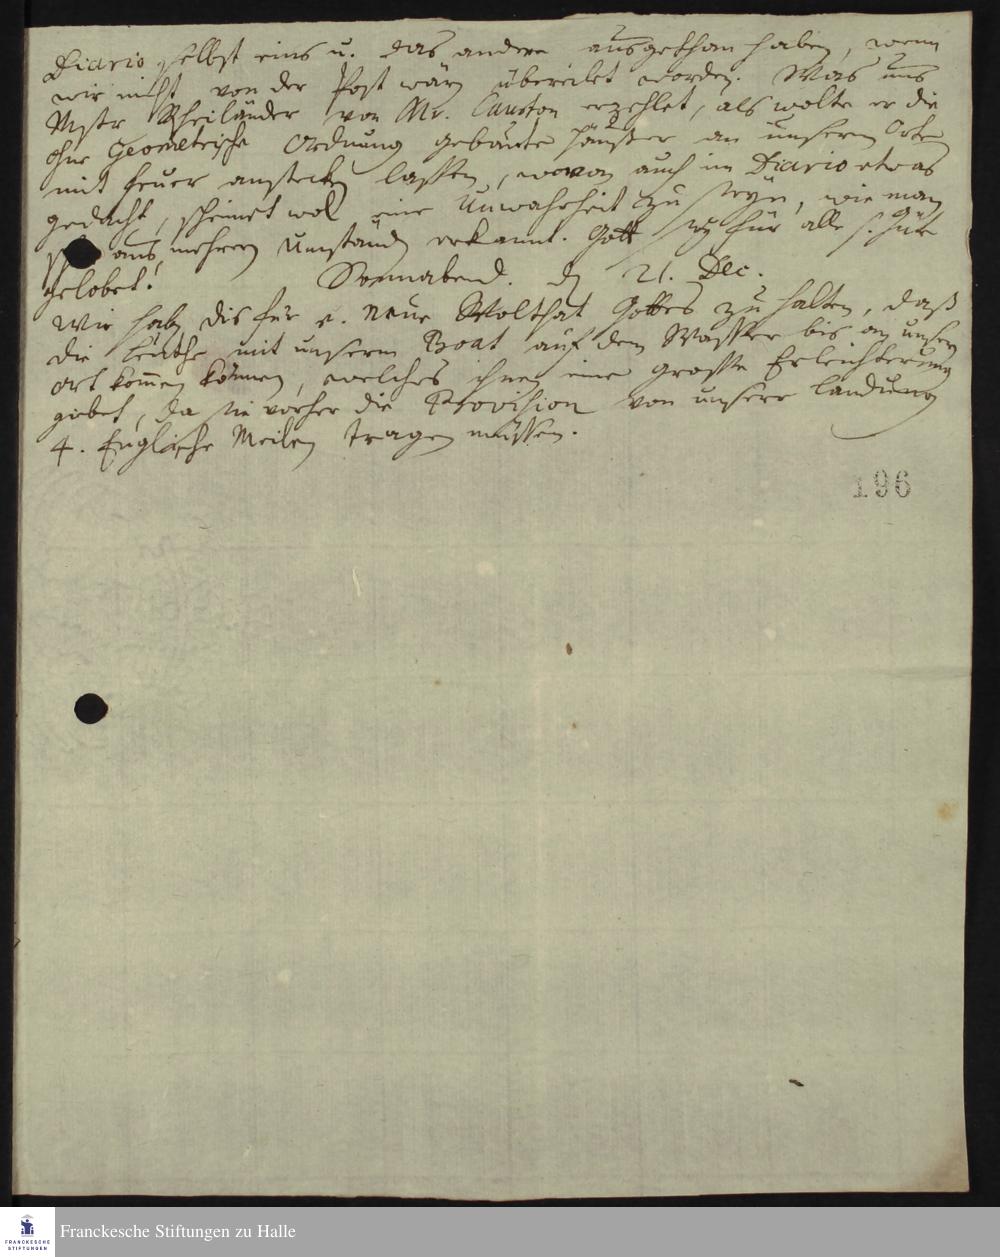 Diario selbst eins u. das andere ausgethan haben, wenn
wir nicht von der Post wären übereilet worden. Was uns
Mstr Rheiländer von Mr. Causton erzehlet, als wolte er die
ohne Geometrische Ordnung gebäute Häußer an unserm Orte
mit Feuer anstecken lassen, wovon auch im Diario etwas
gedacht, scheinet wol eine Unwahrheit zu seyn, wie man
aus mehrern Umständen erkannt. Gott sey für alle s. Güte
gelobet! Sonnabend. d 21. Dec.
Wir haben dis für e. neue Wolthat Gottes zu halten, daß
die Leuthe mit unserm Boat auf dem Wasser bis an unsern
Ort kommen können, welches ihnen eine grosse Erleichterung
giebet, da sie vorher die Provision von unserer Landung
4. Englische Meilen tragen müssen.
196
Franckesche Stiftungen zu Halle
FRANCKESCHE
STIFTUNGEN